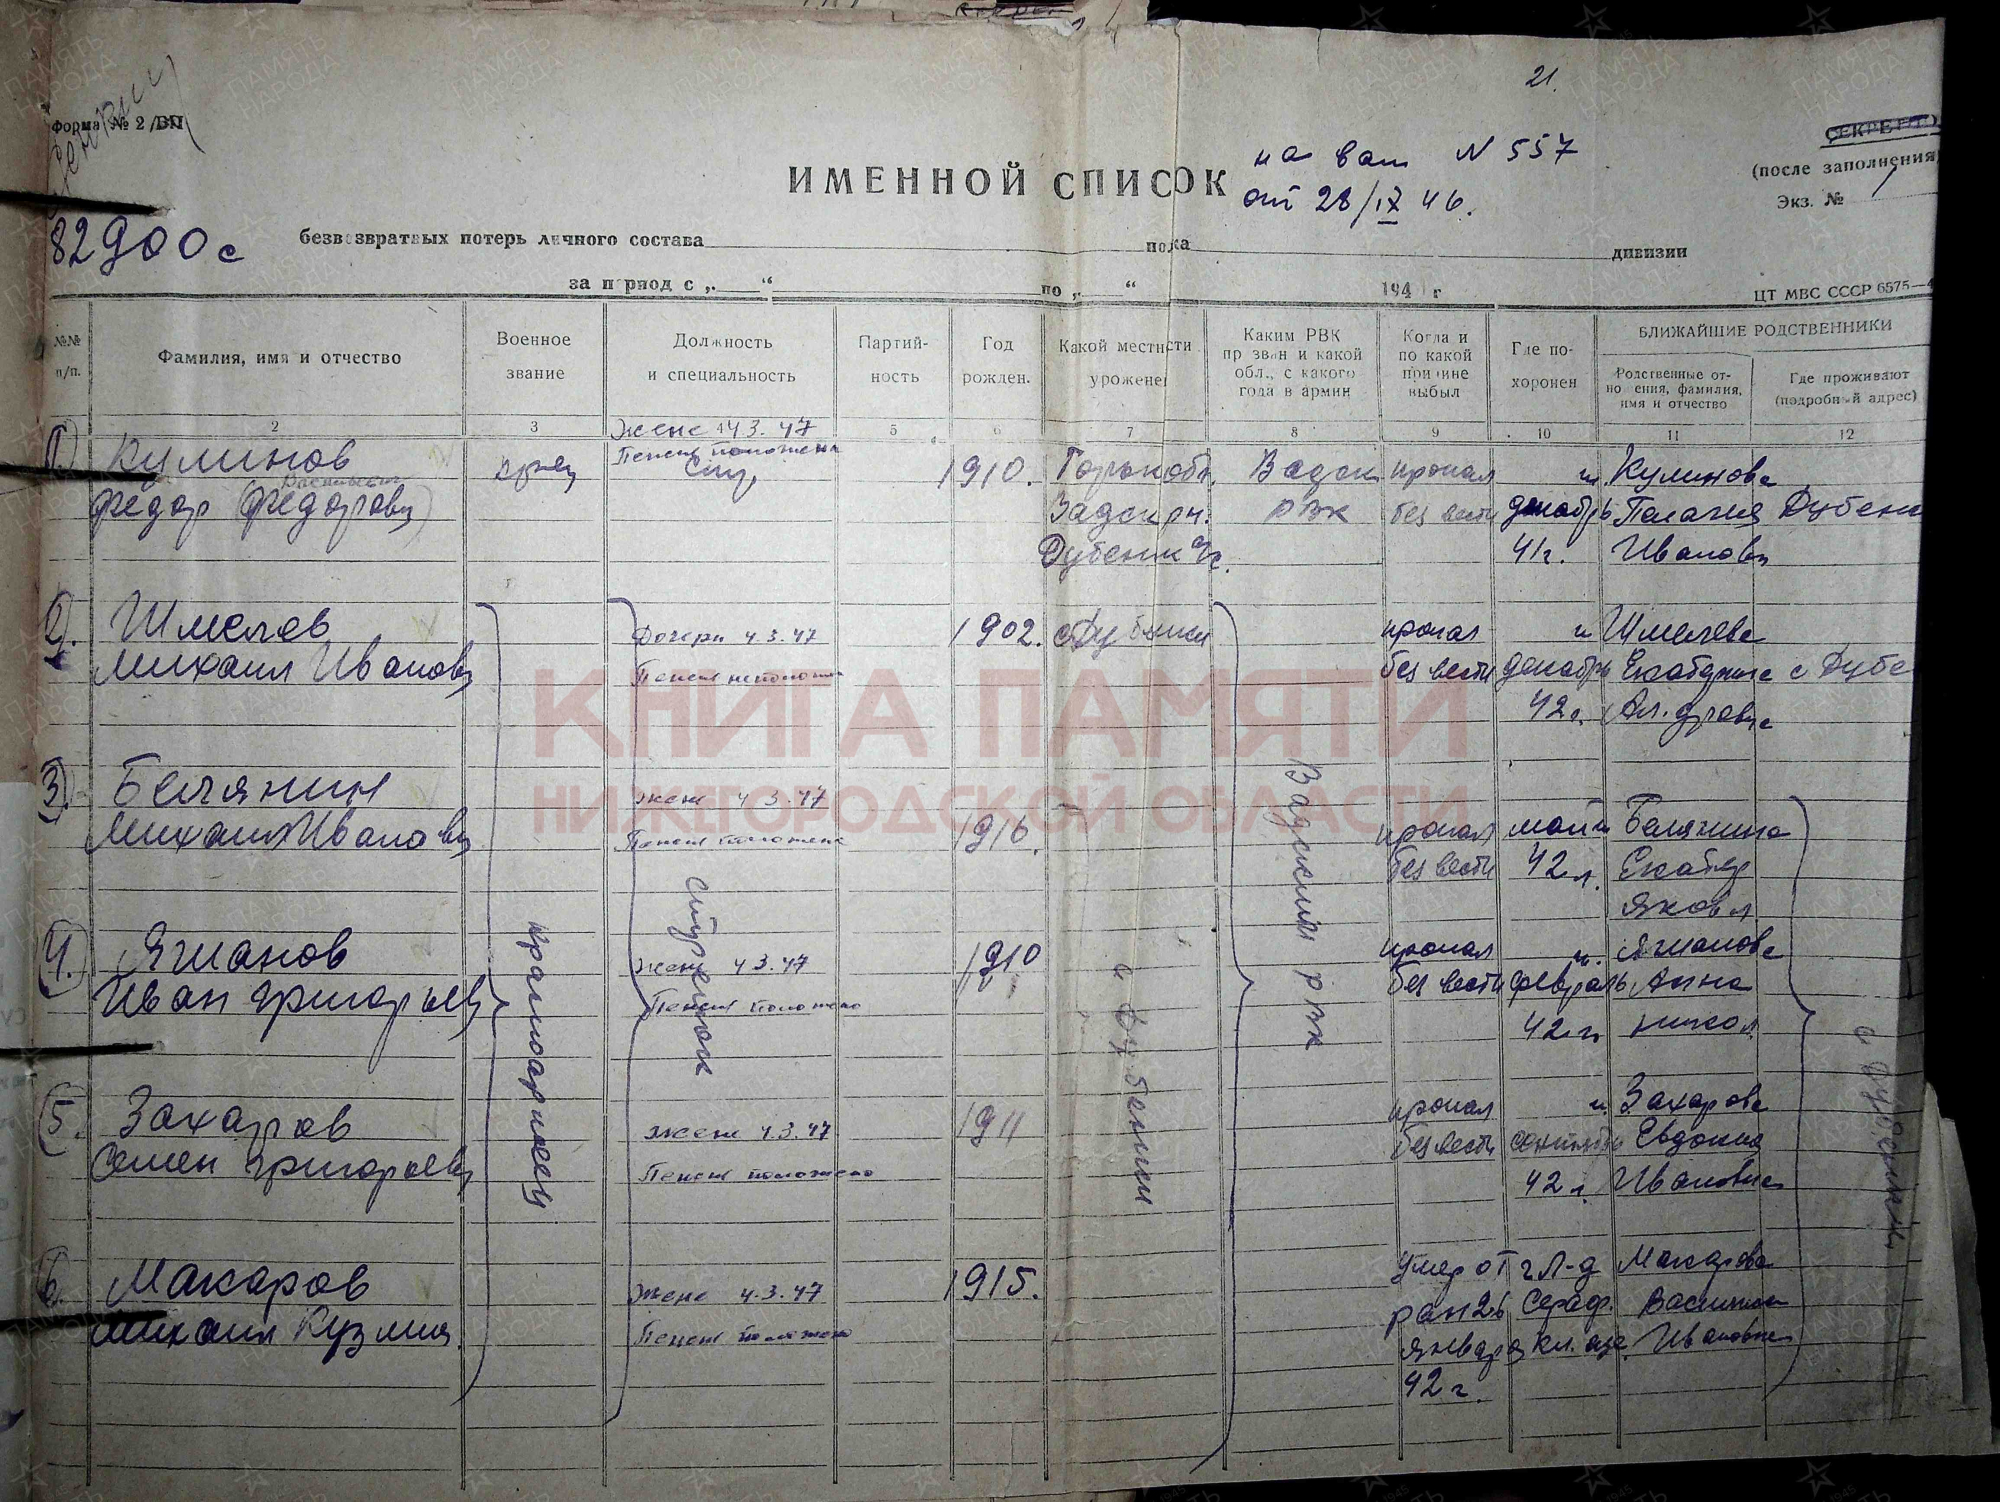 21.
Форма № 2/ВП
СЕКРЕТНО
(после заполнения)
Экз. № 1
ИМЕННОЙ СПИСОК
на ваш N 557
от 28/IX 46.
82900с
безвозвратных потерь личного состава полка дивизии
за период с „ “ по „ “ 194 г
ЦТ МВС СССР 6575—4
№№ п/п.
Фамилия, имя и отчество
Военное звание
Должность и специальность
Партийность
Год рожден.
Какой местности уроженец
Каким РВК призван и какой обл., с какого года в армии
Когда и по какой причине выбыл
Где похоронен
БЛИЖАЙШИЕ РОДСТВЕННИКИ
Родственные отношения, фамилия, имя и отчество
Где проживают (подробный адрес)
2 3 5 6 7 8 9 10 11 12
Жене 4.3.47
Пенсия положена
1) Кулинов кр-нец Стр. 1910. Горьк обл. Вадск пропал ж. Кулинова
Васильевич
Федор (Федорович) Вадск рн. РВК без вести декабрь Пелагия Дубенк
Дубенк с/с. 41г. Ивановн
2). Шмелев Дочери 4.3.47 1902. с Дубенки пропал ж Шмелева
Михаил Иванович Пенсия неположена без вести декабрь Екатерина с Дубе
42 г. Ал.дровна
КНИГА ПАМЯТИ
НИЖЕГОРОДСКОЙ ОБЛАСТИ
3). Белянин жене 4.3.47
Михаил Иванович Пенсия положена 1916. пропал май Белянина
без вести 42 г. Екатер
Яковл
4. Ягманов Жене 4.3.47 1910 пропал ж. Ягманова
Иван Григорьевич Пенсия положено без вести февраль Анна
42 г. Никол
5. Захаров жене 4.3.47 1911 пропал ж. Захарова
Семен Григорьевич Пенсия положено без вести сентябрь Евдокия
42 г. Ивановна
6. Макаров Жене 4.3.47 1915. умер от Макарова
Михаил Кузмич. Пенсия положено ран 26 Сераф.
января кл. Ивановна
42 г.
красноармеец
стрелок
с Дубенки
Вадским РВК
с Дубенки
ПАМЯТЬ НАРОДА